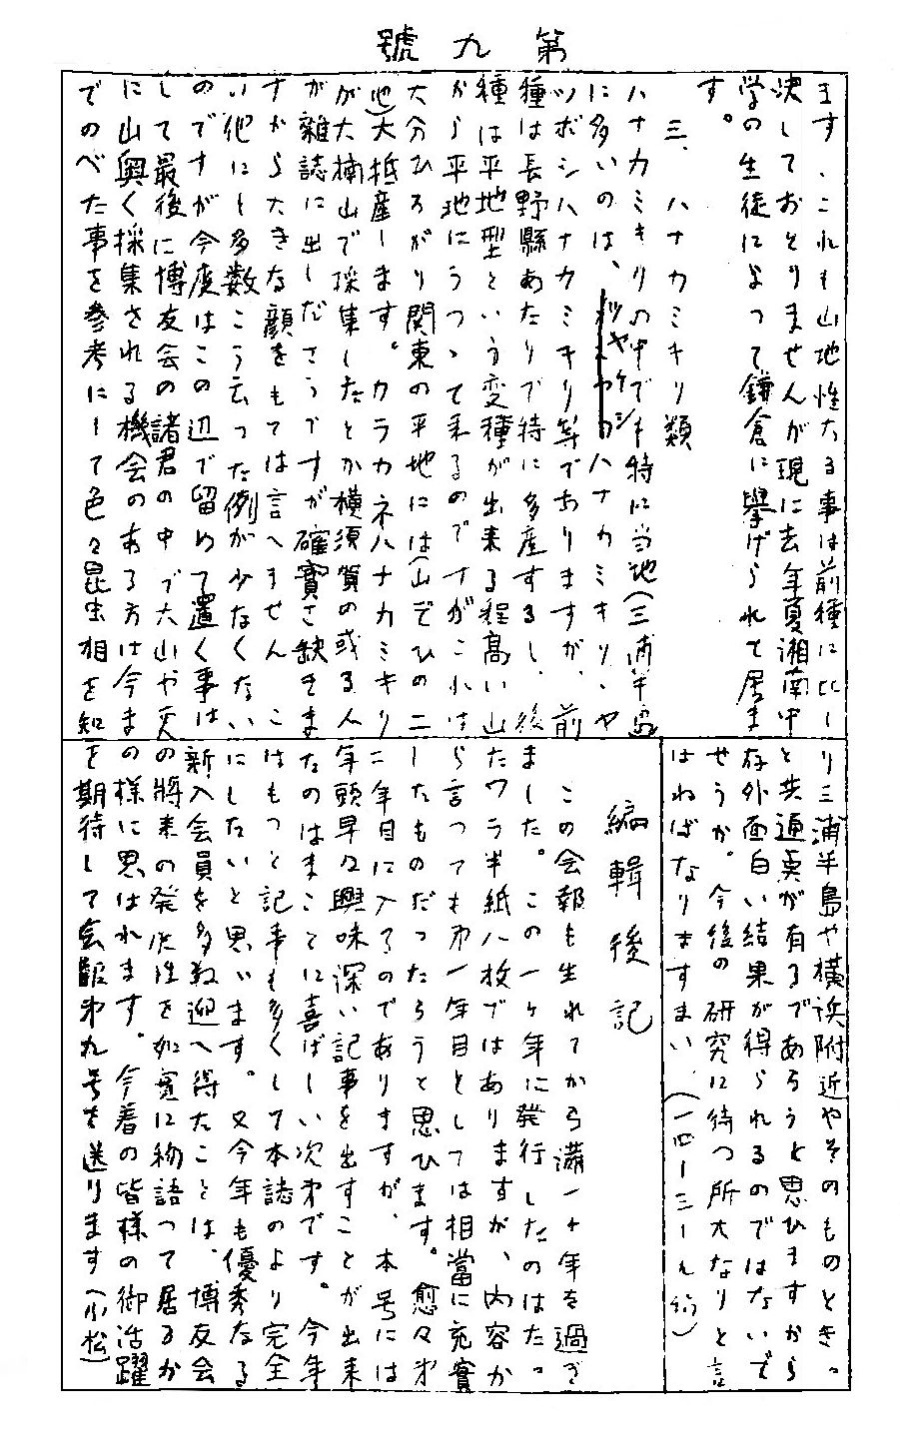 第九號
ます、これも山地性大る事は前種に比し
決しておとりませんが現に去年夏湘南中
学の生徒によつて鎌倉に擧げられて居ま
す。
三、ハナカミキリ類
ハナカミキリの中でも特に当地(三浦半島
に多いのは、ハナカミキリ、ヤ
ツボシハナカミキリ等でありますが、前
種は長野縣あたりで特に多産するし、後
種は平地型という変種が出来る程高い山
から平地にうつゝて来るのですがこれは
大分ひろがり関東の平地には(山でひの二
池)大抵産します。カラカネハナカミキリ
が大楠山で採集したとか横須賀の或る人
が雜誌に出しださうですが確實さ缺きま
すから大きな顔をもては言へません こ
い他にも多数こう云つた例が少なくない
のですが今度はこの辺で留めて置く事は
して最後に博友会の諸君の中で大山や天
に山奥く採集される機会のある方は今ま
でのべた事を参考にして色々昆虫相を知
り三浦半島や横浜附近やそのものときっ
と共通点が有るであろうと思ひますから
存外面白い結果が得られるのではないで
せうか。今後の研究に待つ所大なりと言
はねばなりますまい、(一四ー三ー
編輯後記
この会報も生れてから満一ヶ年を過ぎ
ました。この一ヶ年に発行したのはたっ
たワラ半紙八枚ではありますが、内容か
ら言つても第一年目としては相當に充實
したものだつたらうと思ひます。愈々第
二年目に入るのでありますが、本号には
年頭早々興味深い記事を出すことが出来
たのはまことに喜ばしい次第です。今年
はもつと記事も多くして本誌のより完全
にしたいと思います。又今年も優秀なる
新入会員を多数迎へ得たことは、博友会
の將来の発展性を如実に物語つて居るか
の様に思はれます。今春の皆様の御活躍
を期待して会報第九号を送ります(小松)